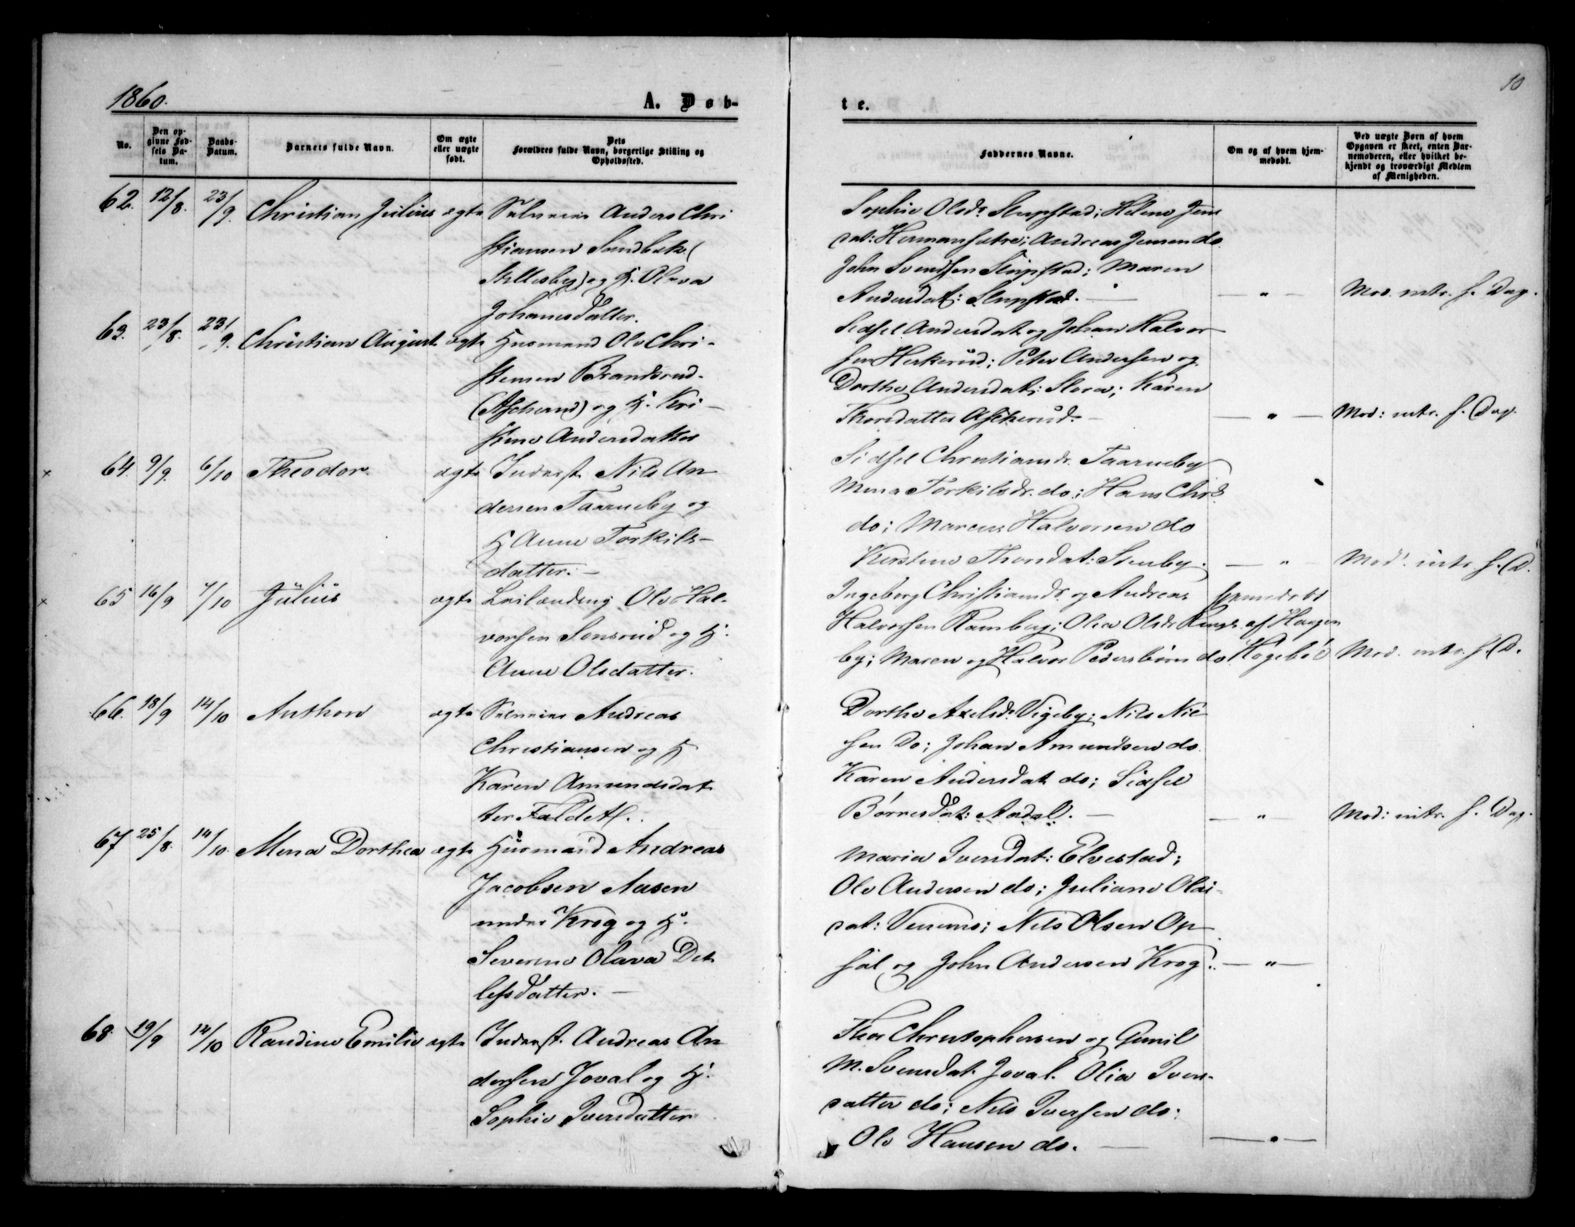 1860.
A. Døb-
te.
10
No.
Den opgivne Fødsels Datum.
Daabs-Datum.
Barnets fulde Navn.
Om ægte eller uægte født.
Dets Forældres fulde Navn, borgerlige Stilling og Opholdssted.
Faddernes Navne.
Om og af hvem hjemmedøbt.
Ved uægte Børn af hvem Opgaven er skeet, enten Barnemoderen, eller hvilket bekjendt og troværdigt Medlem af Menigheden.
62. 12/8. 23/9. Christian Julius ægte Selveier Anders Chri
stiansen Sundbek
og H. Olava
Johanesdatter.
Sophie Olsdr Slupstad; Helene Jens
dat: Hermansætre; Andreas Jensen do.
John Svendsen Slupstad; Maren
Andersdat: Slupstad. — " — Mod. intr. s. Dag.
63. 23/8. 23/9. Christian August ægte Husmand Ole Chri-
stensen Brandsrud
(Askerud) og H. Kri-
stine Andersdatter
Sidsel Andersdat og Johan Halvor
sen Herkerud; Peter Andersen og
Dorthe Andersdat; Slora; Karen
Thorsdatter Askerud. — " — Mod: intr. s. Dag.
64 9/9. 6/10 Theodor ægte Inderst Nils An
dersen Taarneby og
H Anne Torkils-
datter. —
Sidsel Christiansdr. Taarneby
Mena Torkilsdr. do; Hans Chrs.
do; Marcus Halvorsen do
Kirstine Thorsdat: Stenby. — " — Mod! intr s. D.
65 16/9 7/10 Julius ægte Leilænding Ole Hal-
vorsen Sonsrud og H.
Anne Olsdatter.
Ingeborg Christiansdr og Andreas
Halvorsen Ramberg; Olea Olsdr
by; Maren og Halvor Pedersbørn do
hjemedøbt
af Haagen
Høgebøl Mod. intr. s. D.
66. 18/9 14/10 Anthon ægte Selveier Andreas
Christiansen og H
Karen Amundsdat
ter Faldet.
Dorthe Axelsdr Vigeby; Nils Niel
sen do; Johan Amundsen do.
Karen Andersdat do; Sidsel
Børresdat: Aadal. — " — Mod: intr. s. Dag.
67 25/8. 14/10 Mena Dorthea ægte Husmand Andreas
Jacobsen Aasen
under Krog og H.
Severine Olava Det
lefsdatter. —
Maria Iversdat: Elvestad;
Ole Andersen do; Juliane Olai
dat: Nils Olsen Op
sal og John Andersen Krog. — " —
68. 19/9 14/10 Randine Emilie ægte Inderst. Andreas An
dersen Joval og H.
Sophie Iversdatter
Thor Christophersen og Gunil
M. Svensdat. Joval. Olia Ivers-
datter do; Nils Iversen do:
Ole Hansen do. — " —